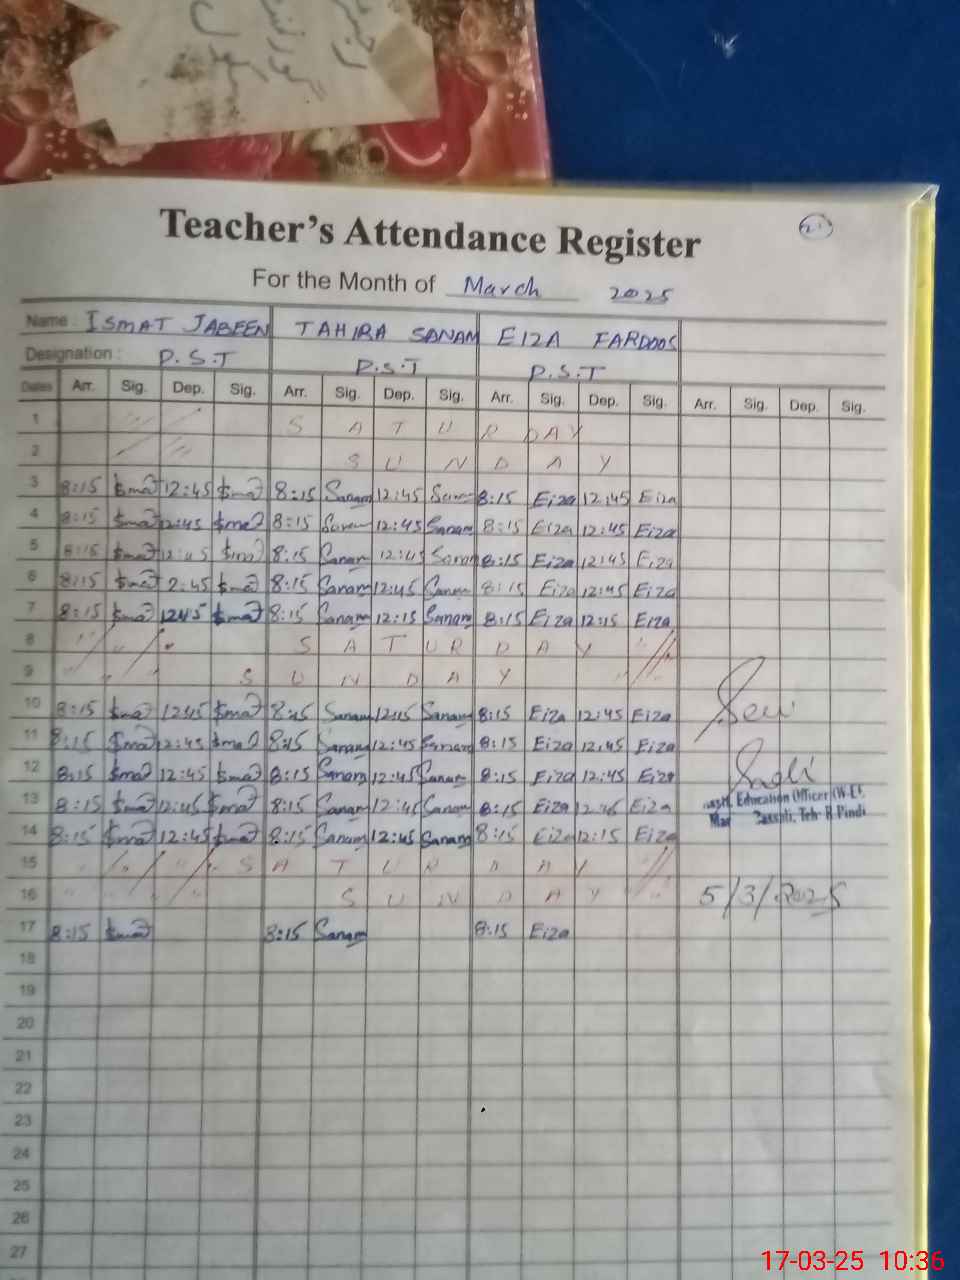 Teacher's Attendance Register
For the Month of March 2025
Name : ISMAT JABEEN TAHIRA SANAM EIZA FARDOOS
Designation : P.S.T P.S.T P.S.T
Dates Arr. Sig. Dep. Sig. Arr. Sig. Dep. Sig. Arr. Sig. Dep. Sig. Arr. Sig. Dep. Sig.
1 SATURDAY
2 SUNDAY
3 8:15 12:45 8:15 Sanam 12:45 8:15 Eiza 12:45 Eiza
4 8:15 12:45 8:15 12:45 Sanam 8:15 Eiza 12:45 Eiza
5 8:15 12:45 8:15 Sanam 12:45 Sanam 8:15 Eiza 12:45 Eiza
6 8:15 2:45 8:15 Sanam 12:45 Sanam 8:15 Eiza 12:45 Eiza
7 8:15 1245 8:15 Sanam 12:15 Sanam 8:15 Eiza 12:15 Eiza
8 SATURDAY
9 SUNDAY
10 8:15 8:15 Sanam Sanam 8:15 Eiza 12:45 Eiza
11 8:15 12:45 8:15 Sanam 12:45 Sanam 8:15 Eiza 12:45 Eiza
12 8:15 12:45 8:15 Sanam 12:45 Sanam 8:15 Eiza 12:45 Eiza
13 8:15 12:45 8:15 Sanam 12:45 Sanam 8:15 Eiza Eiza
14 8:15 12:45 8:15 Sanam 12:45 Sanam 8:15 Eiza 12:15 Eiza
Education Officer (W-E
Mar Teh: R.Pindi
15 SATURDAY
16 SUNDAY 5/3/2025
17 8:15 8:15 Sanam 8:15 Eiza
18
19
20
21
22
23
24
25
26
27
17-03-25 10:36